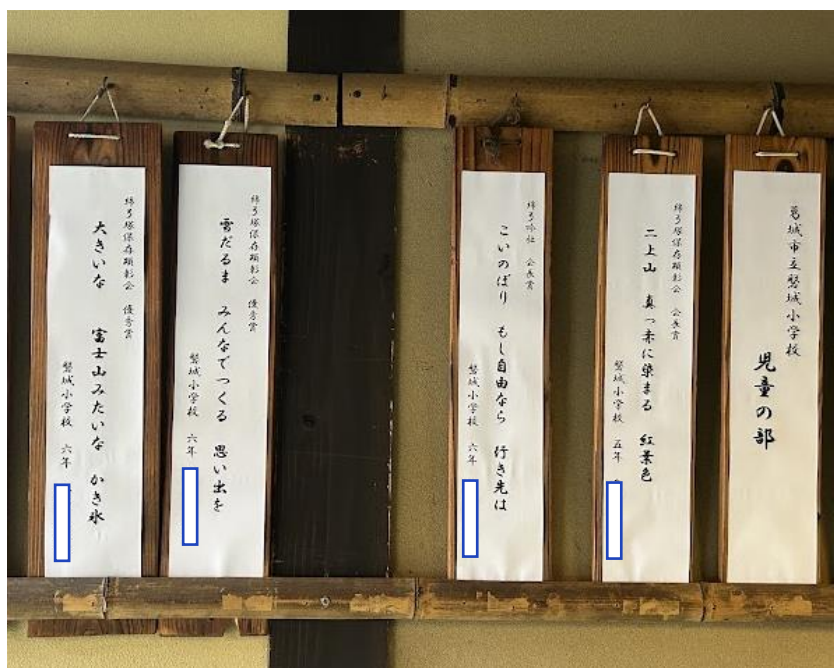 葛城市立磐城小学校
児童の部
綿弓塚保存顕彰会 会長賞
二上山 真っ赤に染まる 紅葉色
磐城小学校 五年
綿弓吟社 会長賞
こいのぼり もし自由なら 行き先は
磐城小学校 六年
綿弓塚保存顕彰会 優秀賞
雪だるま みんなでつくる 思い出を
磐城小学校 六年
綿弓塚保存顕彰会 優秀賞
大きいな 富士山みたいな かき氷
磐城小学校 六年